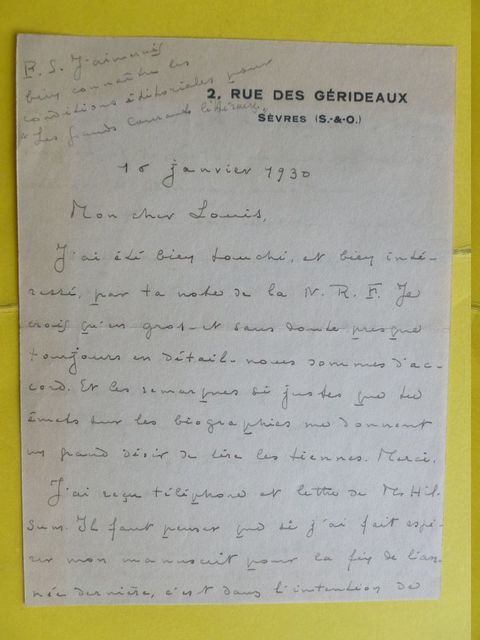 P. S. J'aimerais
bien connaître les
conditions éditoriales pour
"Les grands courants littéraires"
2, RUE DES GÉRIDEAUX
SÈVRES (S.-&-O.)
16 janvier 1930
Mon cher Louis,
J'ai été bien touché, et bien inté-
ressé, par ta note de la N. R. F. Je
crois qu'en gros - et sans doute presque
toujours en détail - nous sommes d'ac-
cord. Et les remarques si justes que tu
émets sur les biographies me donnent
un grand désir de lire les tiennes. Merci.
J'ai reçu téléphone et lettre de Mr Hil-
sum. Il faut penser que si j'ai fait espé-
rer mon manuscrit pour la fin de l'an-
née dernière, c'est dans l'intention de